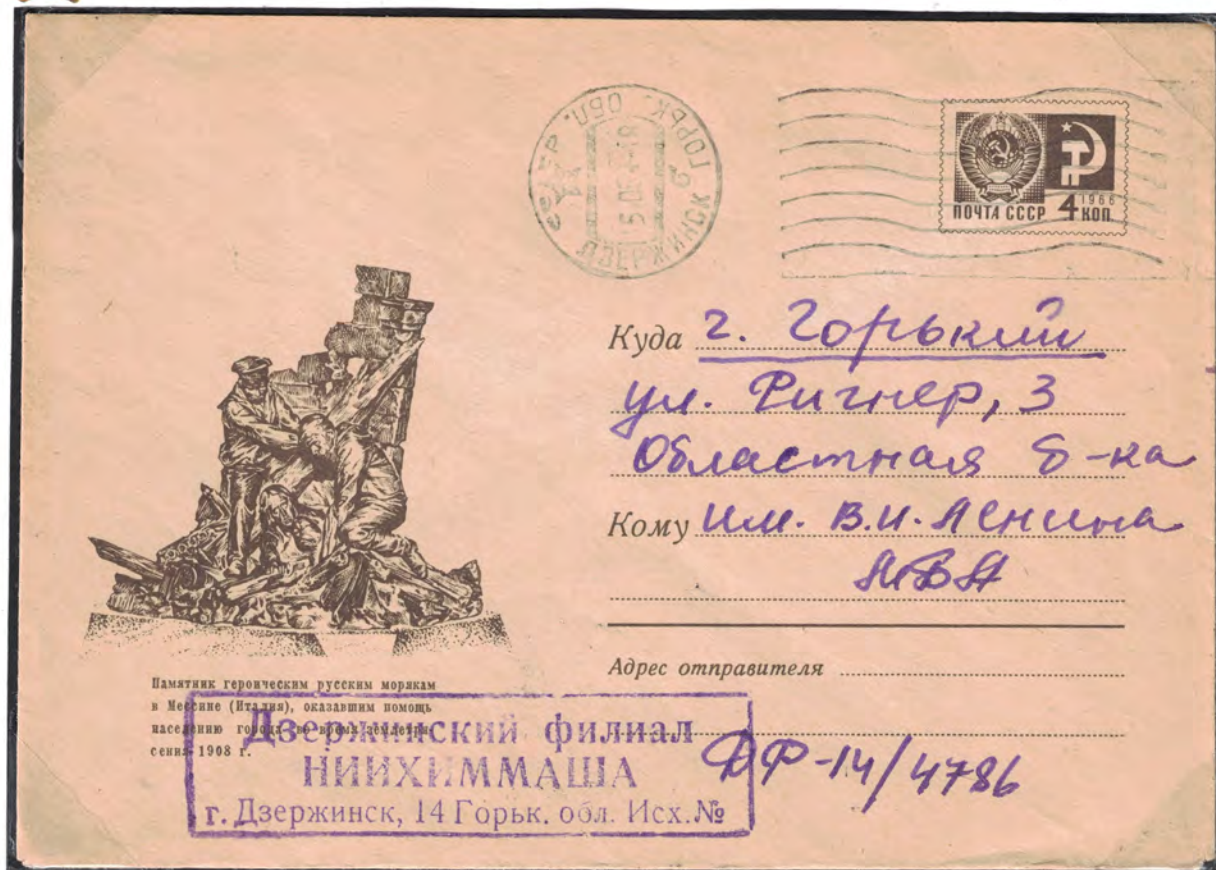 ДЗЕРЖИНСК ГОРЬК. ОБЛ.
ПОЧТА СССР 4 КОП.
1966
Куда г. Горький
ул. Фигнер, 3
Областная б-ка
Кому им. В.И. Ленина
МБА
Адрес отправителя
Памятник героическим русским морякам
в Мессине (Италия), оказавшим помощь
населению города во время землетря-
сения 1908 г.
Дзержинский филиал
НИИХИММАША
г. Дзержинск, 14 Горьк. обл. Исх.№
ДФ-14/4786